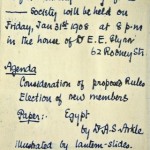 — Society will be held on
Friday, Jan 31st 1908 at 8 p.m.
in the house of Dr E. E. Glynn
62 Rodney St.
Agenda
Consideration of proposed Rules
Election of new members
Paper:- Egypt
by Dr A. S. Arkle
Illustrated by lantern-slides.